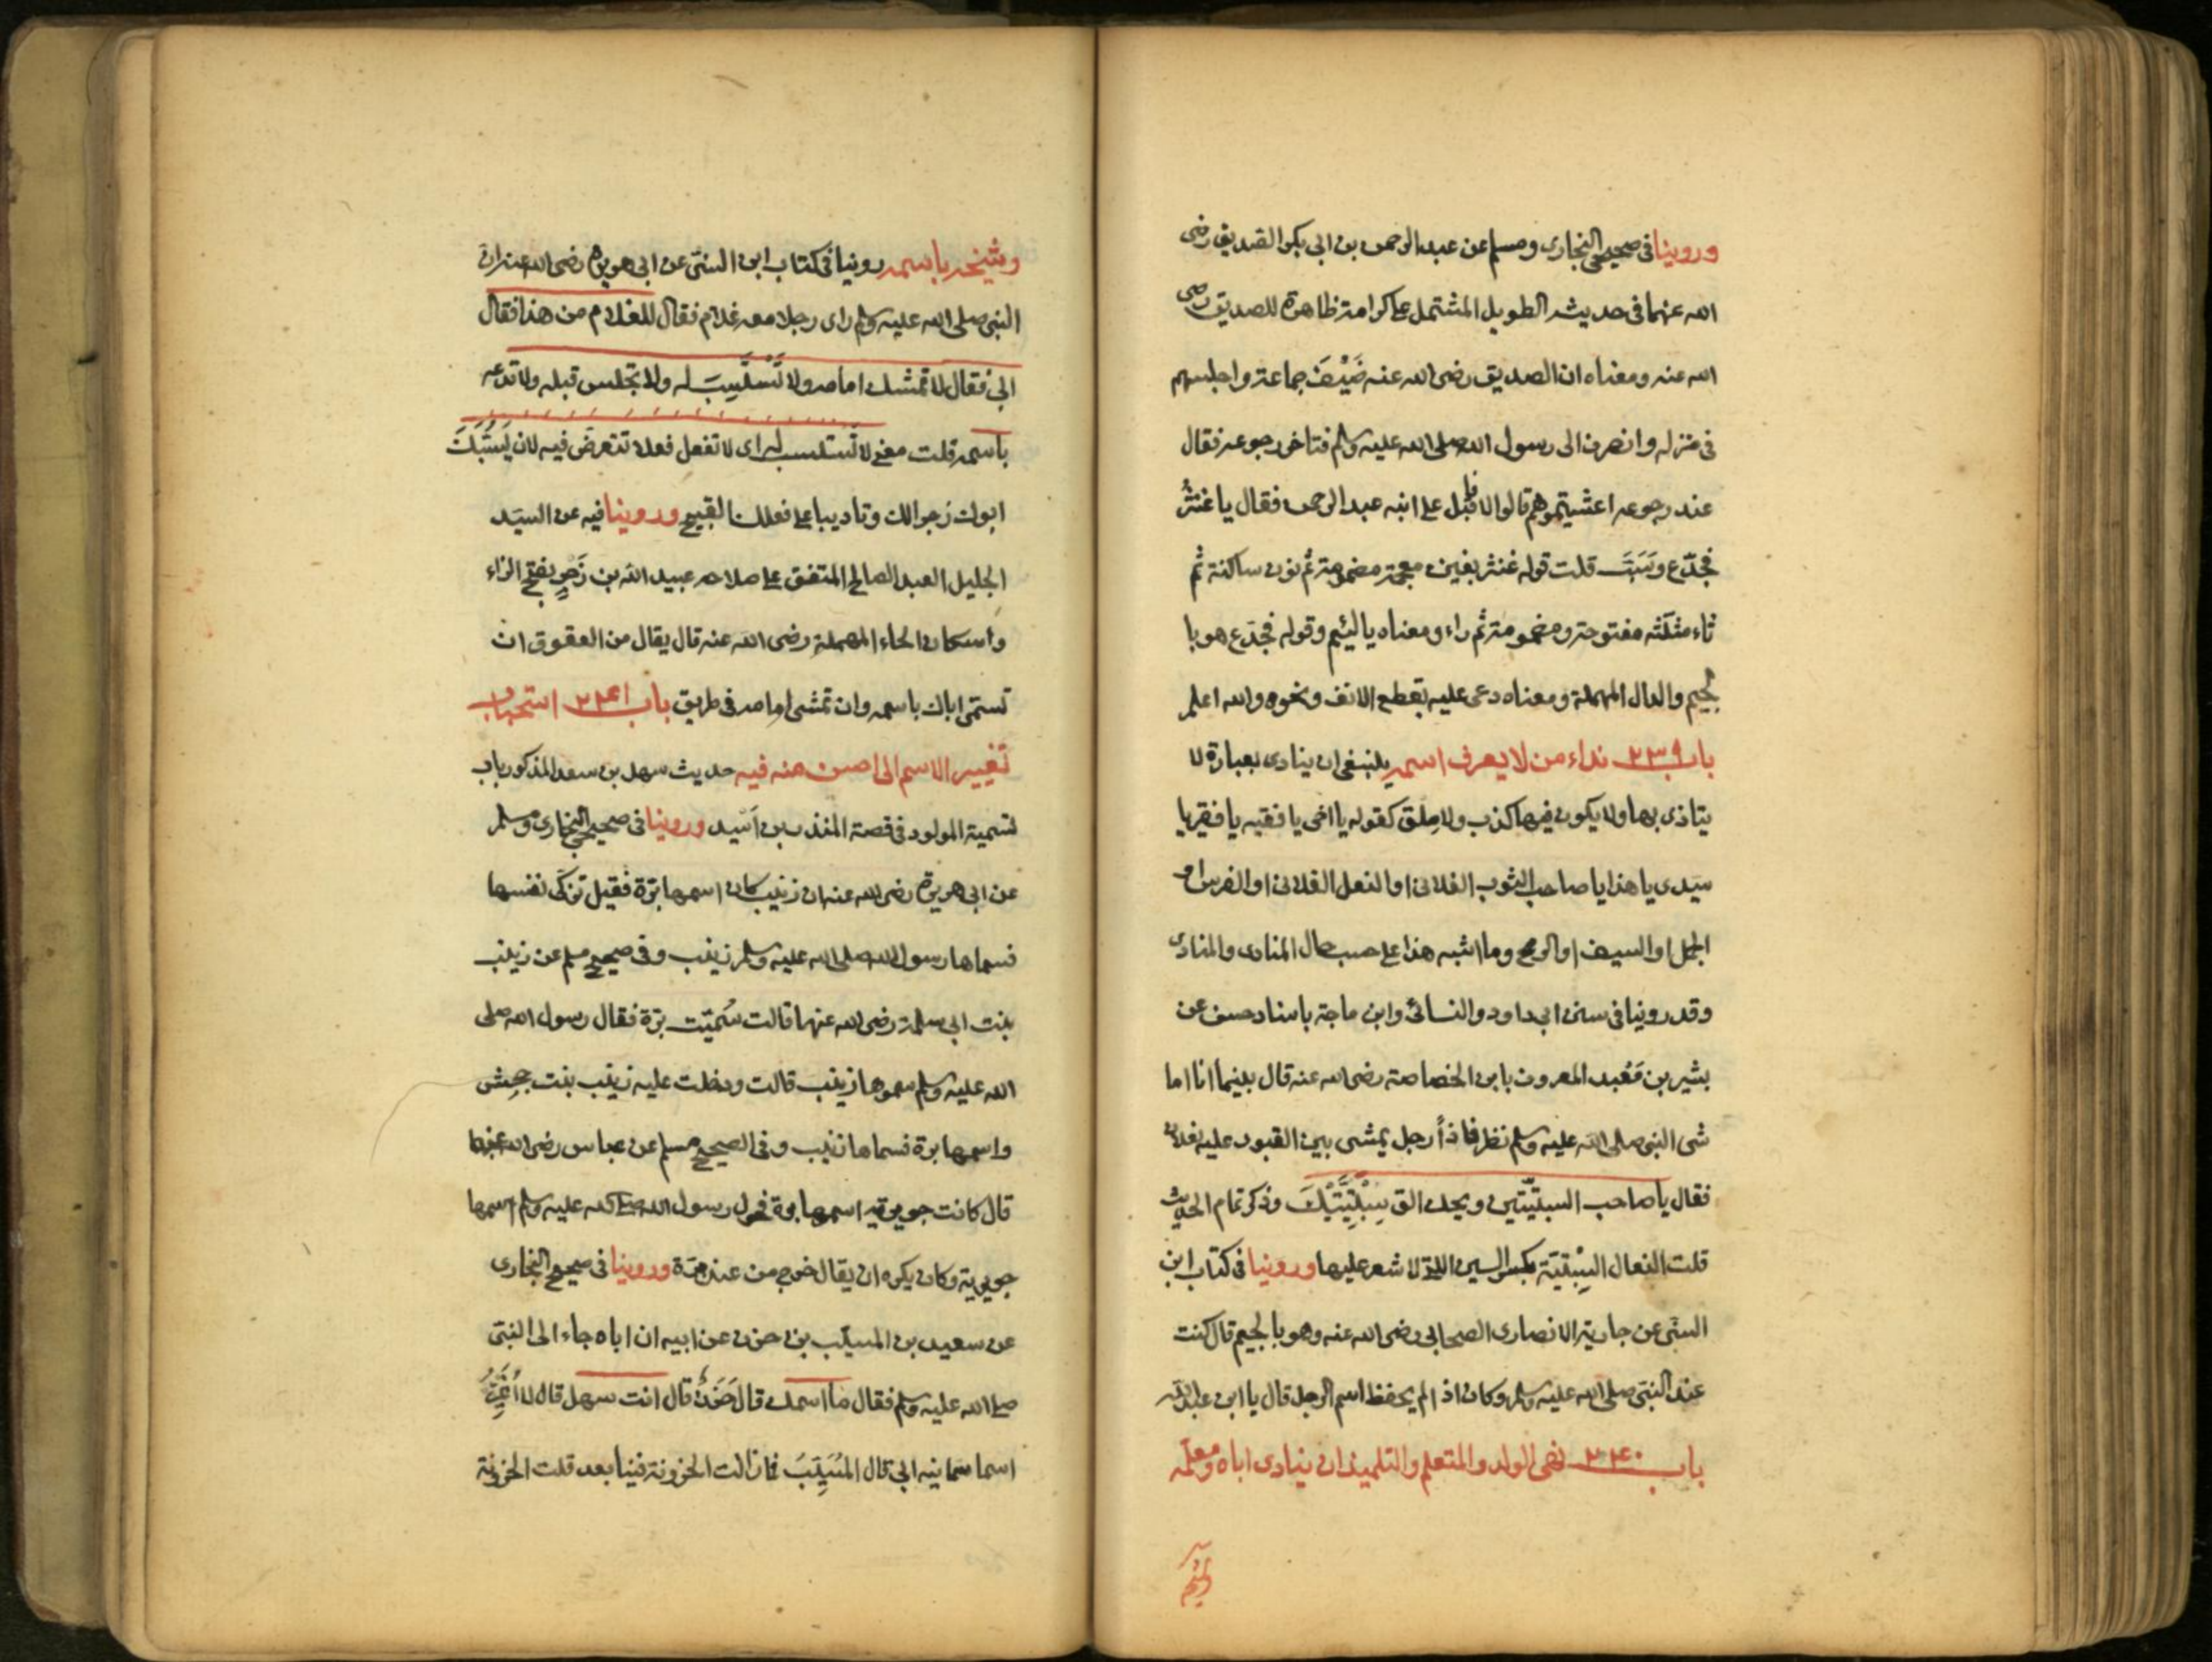 وروينا في صحيحي البخارى ومسلم عن عبد الرحمن بن ابى بكر الصديق رضى
الله عنهما فى حديثه الطويل المشتمل على كرامة ظاهرة للصديق رضى
الله عنه ومعناه ان الصديق رضى الله عنه ضيّف جماعة واجلسهم
فى منزله وانصرف الى رسول الله صلى الله عليه وسلم فتاخر رجوعه فقال
عند رجوعه اعشيتموهم قالوا لا فاقبل على ابنه عبد الرحمن فقال يا غنثر
فجدّع وسبّ قلت قوله غنثر بغين معجمة مضمومة ثم نون ساكنة ثم
ثاء مثلّثه مفتوحة ومضمومة ثم راء ومعناه يا لئيم وقوله فجدّع هو با
لجيم والدال المهملة ومعناه دعى عليه بقطع الانف ونحوه والله اعلم
باب ٢٣٩ نداء من لا يعرف اسمه ينبغى ان ينادى بعبارة لا
يتاذى بها ولا يكون فيها كذب ولا ملق كقوله يا اخى يا فقيه يا فقير يا
سيدى يا هذا يا صاحب الثوب الفلانى او النعل الفلانى او الفرس او
الجمل او السيف او الرمح وما اشبه هذا على حسب حال المنادى والمنادى
وقد روينا فى سنن ابى داود والنسائى وابن ماجة باسناد حسن عن
بشير بن مَعْبد المعروف بابن الخصاصة رضى الله عنه قال بينما انا اما
شى النبى صلى الله عليه وسلم نظر فاذاً رجل يمشى بين القبور عليه نعلان
فقال يا صاحب السبتيّتين ويحك الق سِبْتِيَّتَيْكَ وذكر تمام الحديث
قلت النعال السِبْتيَة بكسر السين التى لا شعر عليها وروينا فى كتاب ابن
السنّى عن جارية الانصارى الصحابى رضى الله عنه وهو بالجيم قال كنت
عند النبى صلى الله عليه وسلم وكان اذا لم يحفظ اسم الرجل قال يا ابن عبد الله
باب ٢٤٠ نهى الولد والمتعلم والتلميذ ان ينادى اباه ومعلّمه
وشيخه باسمه روينا فى كتاب ابن السنّى عن ابى هريرة رضى الله عنه ان
النبى صلى الله عليه وسلم راى رجلا معه غلام فقال للغلام من هذا فقال
ابى فقال لا تمش امامه ولا تَسْتَسِبَّ له ولا تجلس قبله ولا تدعه
باسمه قلت معنى لا تستسب له اى لا تفعل فعلا تتعرض فيه لان يَسُبَّكَ
ابوك زجرا لك وتاديبا على فعلك القبيح وروينا فيه عن السيّد
الجليل العبد الصالح المتفق على صلاحه عبيد الله بن زَحرٍ بفتح الزاء
واسكان الحاء المهملة رضى الله عنه قال يقال من العقوق ان
تسمّى اباك باسمه وان تمشى امامه فى طريق باب ٢٤١ استحباب
تغيير الاسم الى احسن منه فيه حديث سهل بن سعد المذكور باب
تسمية المولود فى قصة المنذر بن اَسيد وروينا فى صحيحي البخارى ومسلم
عن ابى هريرة رضى الله عنه ان زينب كان اسمها برّة فقيل تزكّى نفسها
فسماها رسول الله صلى الله عليه وسلم زينب وفى صحيح مسلم عن زينب
بنت ابى سلمة رضى الله عنهما قالت سُمّيّت برّة فقال رسول الله صلى
الله عليه وسلم سموها زينب قالت ودخلت عليه زينب بنت جحش
واسمها برة فسماها زينب وفى الصحيح مسلم عن عباس رضى الله عنهما
قال كانت جويرية اسمها برة فحول رسول الله صلى الله عليه وسلم اسمها
جويرية وكان يكره ان يقال خرج من عند برّة وروينا فى صحيح البخارى
عن سعيد بن المسيّب بن حزن عن ابيه ان اباه جاء الى النبى
صلى الله عليه وسلم فقال ما اسمك قال حَزَنٌ قال انت سهل قال لا اُغَيِّرُ
اسما سمانيه ابى قال المُسَيّبَ فما زالت الحزونة فينا بعد قلت الحزونة